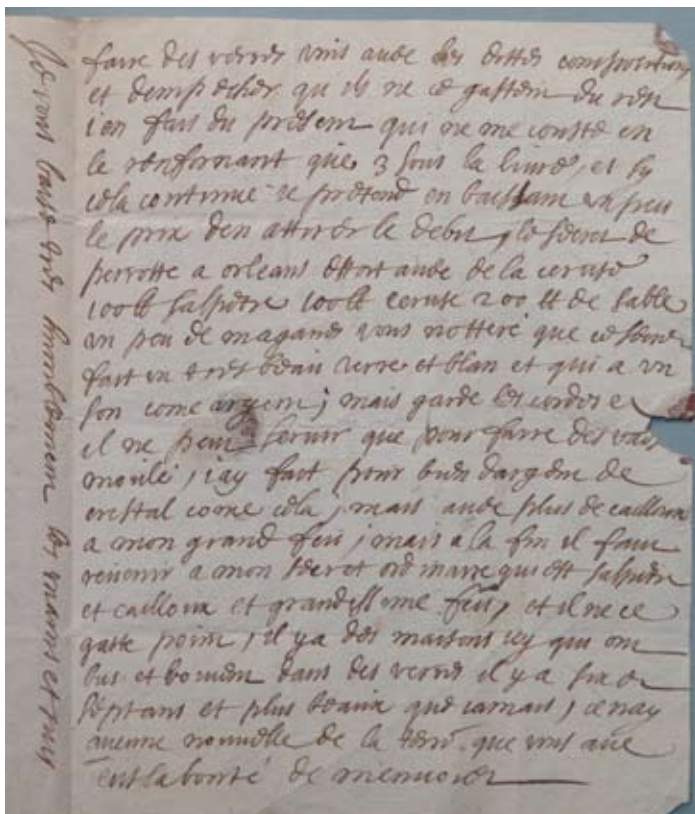 faire des verres unis avec les dittes compositions
et dempecher qu ils ne ce gastem du reste
ien fais du present qui ne me couste en
le renfornant que 3 sous la livre, et sy
cela continue ie pretend en baissam un peu
le prix den attirer le debit, le secret de
perrotte a orleans estoit avec de la ceruse
100lt salpitre 100lt ceruse 200 lt de sable
un peu de magane vous notteré que ce secret
fait un tres beau verre et blan et qui a un
son come argem; mais garde les cordes et
il ne peut servir que pour faire des vases
moulé, iay fait pour bien dargem de
cristal come cela, mais avec plus de cailloux
a mon grand feu, mais a la fin il faut
revenir a mon secret ordinaire qui est salpitre
et cailloux et grandissime feu, et il ne ce
gatte point, il y a des maisons icy qui ont
bus et boivent dans des verres il y a six ou
sept ans et plus beaux que iamais, ie nay
aucune nouvelle de la terre que vous avie
eust la bonté de menvoier
Je vous baise tres humblement les mains et suis